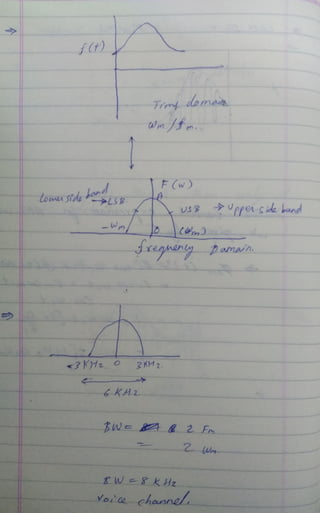 ⇒
f(t)
Time domain
ωm / fm.
F(ω)
Lower side band → LSB
A
USB → Upper side band
-ωm 0 (ωm)
frequency Domain.
⇒
-3KHz 0 3KHz
6 KHz
BW = 2 Fm
= 2 ωm
BW = 8 KHz
Voice channel.